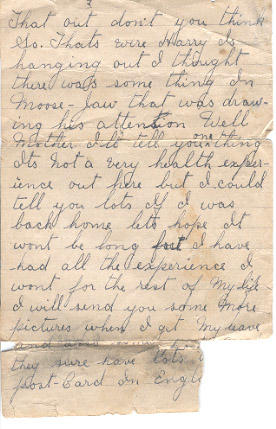 3
That out don't you think
So. Thats wire Harry Is
hanging out I thought
there was some thing In
Moose-Jaw that was draw-
ing his attention Well
Mother I'll tell you one thing
Its not a very health exper-
ience out here but I could
tell you lots If I was
back home lets hope It
wont be long I have
had all the experience I
wont for the rest of My life
I will send you some More
pictures when I get My leave
and
they sure have lots
post-Card In Engl